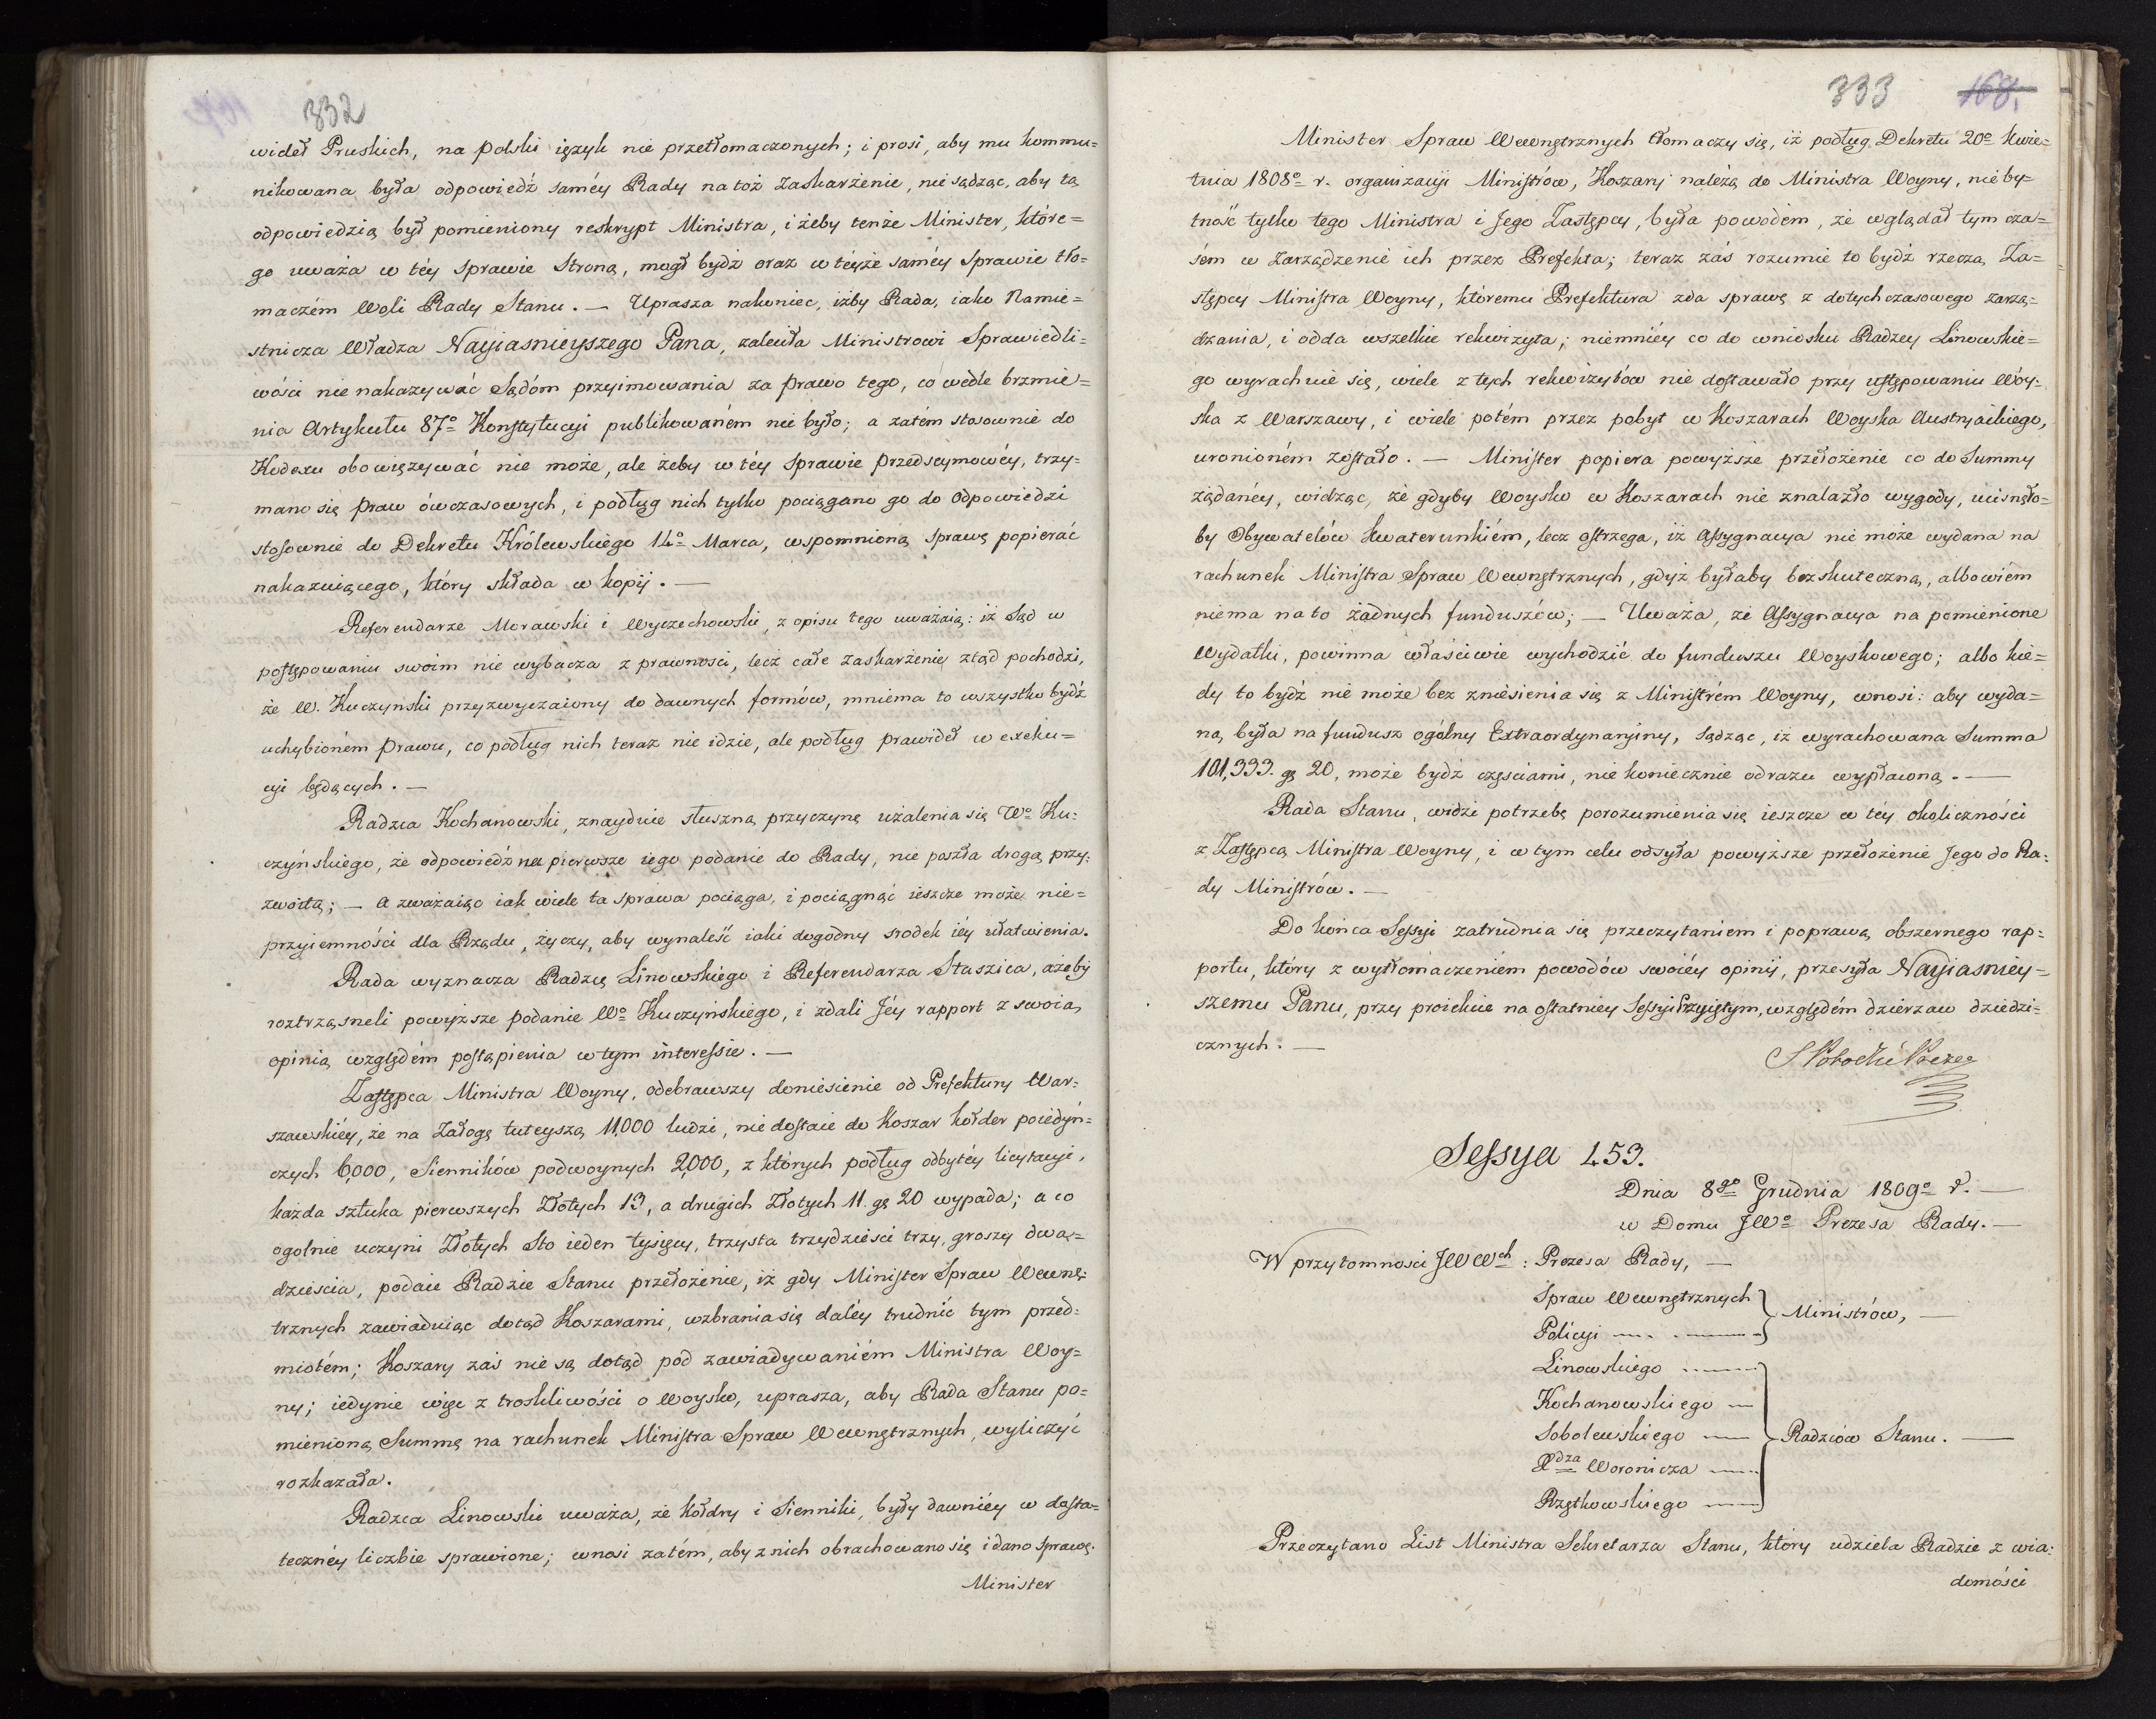 332
wideł Pruskich, na polski ięzyk nie przetłomaczonych; i prosi, aby mu kommu=
nikowana była odpowiedź saméy Rady na toż Zaskarżenie, nie sądząc, aby tą
odpowiedzią był pomieniony reskrypt Ministra, i żeby tenże Minister, które=
go uważa w téy sprawie Stroną, mogł bydź oraz w teyże saméy sprawie tło=
maczém Woli Rady Stanu. — Uprasza nakoniec, iżby Rada, iako Namie=
stnicza Władza Nayiasnieyszego Pana, zaleciła Ministrowi Sprawiedli=
wości nie nakazywać Sądóm przyimowania za prawo tego, co wedle brzmie=
nia Artykułu 87º Konstytucyi publikowaném nie było; a zatém stosownie do
Kodexu obowięzywać nie może, ale żeby w téy sprawie przedseymowéy, trzy=
mano się praw ówczasowych, i podług nich tylko pociągano go do odpowiedzi
stosownie do Dekretu Królewskiego 14º Marca, wspomnioną sprawę popierać
nakazuiącego, który składa w kopij. —
Referendarze Morawski i Wyczechowski, z opisu tego uważaią: iż Sąd w
postępowaniu swoim nie wybacza z prawności, lecz całe zaskarżenie ztąd pochodzi,
że W. Kuczynski przyzwyczaiony do dawnych formów, mniema to wszystko bydź
uchybioném prawu, co podług nich teraz nie idzie, ale podług prawideł w exeku=
cyi będących. —
Radzca Kochanowski, znayduie słuszną przyczynę użalenia się Wº Ku=
czyńskiego, że odpowiedź na pierwsze iego podanie do Rady, nie poszła drogą przy=
zwoitą; — a zważaiąc iak wiele ta sprawa pociąga, i pociągnąć ieszcze może nie=
przyiemności dla Rządu, życzy, aby wynaleść iaki dogodny srodek iéy ułatwienia.
Rada wyznacza Radzcę Linowskiego i Referendarza Staszica, ażeby
roztrząsneli powyższe podanie Wº Kuczyńskiego, i zdali Jéy rapport z swoią
opinią względém postąpienia w tym interessie. —
Zastępca Ministra Woyny, odebrawszy doniesienie od Prefektury War=
szawskiéy, że na Załogę tuteyszą 11,000 ludzi, nie dostaie do Koszar kołder poiedyń=
czych 6,000, Sienników podwoynych 2,000, z których podług odbytéy licytacyi,
każda sztuka pierwszych Złotych 13, a drugich Złotych 11. gę 20 wypada; a co
ogolnie uczyni Złotych Sto ieden tysięcy, trzysta trzydzieści trzy, groszy dwa=
dzieścia, podaie Radzie Stanu przełożenie, iż gdy Minister Spraw Wewnę=
trznych zawiaduiąc dotąd Koszarami, wzbrania się daléy trudnić tym przed=
miotém; Koszary zaś nie są dotąd pod zawiadywaniém Ministra Woy=
ny; iedynie więc z troskliwości o Woysko, uprasza, aby Rada Stanu po=
mienioną Summę na rachunek Ministra Spraw Wewnętrznych, wyliczyć
rozkazała.
Radzca Linowski uważa, że kołdry i Sienniki, były dawniéy w dosta=
teczney liczbie sprawione; wnosi zatém, aby z nich obrachowano się i dano sprawę.
Minister
333 168.
Minister Spraw Wewnętrznych tłomaczy się, iż podług Dekretu 20º Kwie=
tnia 1808º r. organizacyi Ministrów, Koszary należą do Ministra Woyny, nieby=
tność tylko tego Ministra i Jego Zastępcy, była powodém, że wglądał tym cza=
sém w Zarządzenie ich przez Prefekta; teraz zaś rozumie to bydź rzeczą Za=
stępcy Ministra Woyny, któremu Prefektura zda sprawę z dotychczasowego zarzą=
dzania, i odda wszelkie rekwizyta; niemniéy co do wniosku Radzcy Linowskie=
go wyrachuie się, wiele z tych rekwizytów nie dostawało przy ustępowaniu Woy=
ska z Warszawy, i wiele potém przez pobyt w Koszarach Woyska Austryackiego,
uronioném zostało. — Minister popiera powyższe przełożenie co do Summy
żądanéy, widząc, że gdyby Woysko w Koszarach nie znalazło wygody, ucisnęło=
by Obywatelów kwaterunkiém, lecz ostrzega, iż Assygnacya nie może wydana na
rachunek Ministra Spraw Wewnętrznych, gdyż byłaby bezskuteczną, albowiem
niema na to żadnych funduszów; — Uważa, że Assygnacya na pomienione
Wydatki, powinna właściwie wychodzić do funduszu Woyskowego; albo kie=
dy to bydź nie może bez zniesienia się z Ministrém Woyny, wnosi: aby wyda=
ną była na fundusz ogólny Extraordynaryiny, sądząc, iż wyrachowana Summa
101,333. gę 20, może bydź częściami, nie koniecznie odrazu wypłaconą. —
Rada Stanu, widzi potrzebę porozumienia się ieszcze w téy okoliczności
z Zastępcą Ministra Woyny, i w tym celu odsyła powyższe przełożenie Jego do Ra=
dy Ministrów. —
Do końca Sessyi zatrudnia się przeczytaniem i poprawą obszernego rap=
portu, który z wytłomaczeniém powodów swoiéy opinij, przesyła Nayiasniey=
szemu Panu, przy proiekcie na ostatniey Sessyi Przyiętym, względém dzierzaw dziedzi=
cznych. —
Sessya 453.
Dnia 8go Grudnia 1809º r. —
w Domu JWº Prezesa Rady. —
W przytomnosci JWWch: Prezesa Rady, —
Spraw Wewnętrznych
Policyi — Ministrów, —
Linowskiego
Kochanowskiego —
Sobolewskiego — Radzców Stanu. —
Xdza Woronicza —
Rzętkowskiego —
Przeczytano List Ministra Sekretarza Stanu, który udziela Radzie z wia=
domości